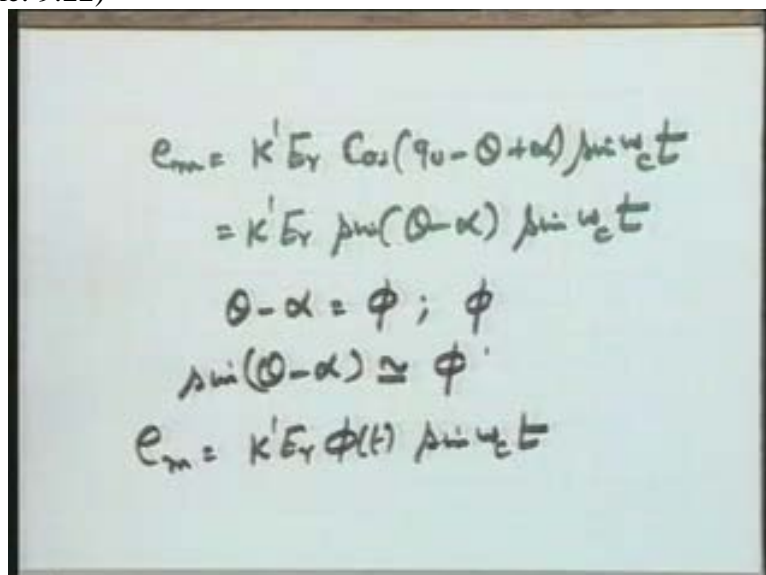 e_m = K' E_r Cos(90 - θ + α) sin w_c t
= K' E_r sin(θ - α) sin w_c t
θ - α = φ ; φ
sin(θ - α) ≃ φ
e_m = K' E_r φ(t) sin w_c t